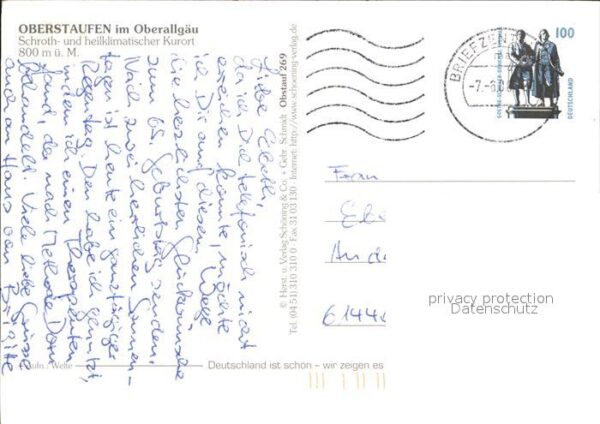 OBERSTAUFEN im Oberallgäu
Schroth- und heilklimatischer Kurort
800 m ü. M.
Liebe
da ich Dich telefonisch nicht
erreichen konnte, möchte
ich Dir auf diesem Wege
die herzlichsten Glückwünsche
zum 65. Geburtstag senden.
Nach zwei herrlichen Sonnen-
tagen ist heute ein ganztägiger
Regentag. Den habe ich genutzt,
indem ich einen Therapeuten
fand, der nach Methode Dorn
behandelt. Viele liebe Grüsse
auch an Hans von Brigitte
Aufn.: Welte
Deutschland ist schön – wir zeigen es
© Herst. u. Verlag Schöning & Co. + Gebr. Schmidt Obstauf 269
Tel. (04 51) 310 310 0 · Fax 31 03 130 · Internet: http://www.schoening-verlag.de
BRIEFZEN
-7.-8.0
100
DEUTSCHLAND
Frau
Ebe
An d
6144
privacy protection
Datenschutz